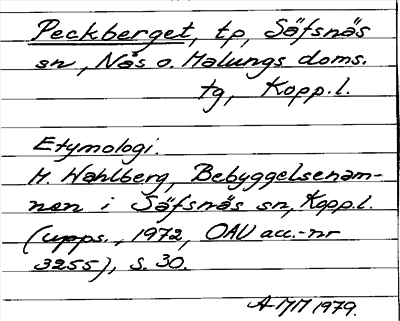 Peckberget, tp, Säfsnäs
sn, Nås o. Malungs doms.
tg, Kopp.l.
Etymologi.
H. Wahlberg, Bebyggelsenam-
nen i Säfsnäs sn, Kopp.l.
(upps., 1972, OAU acc.-nr
3255), s. 30.
AMM 1979.